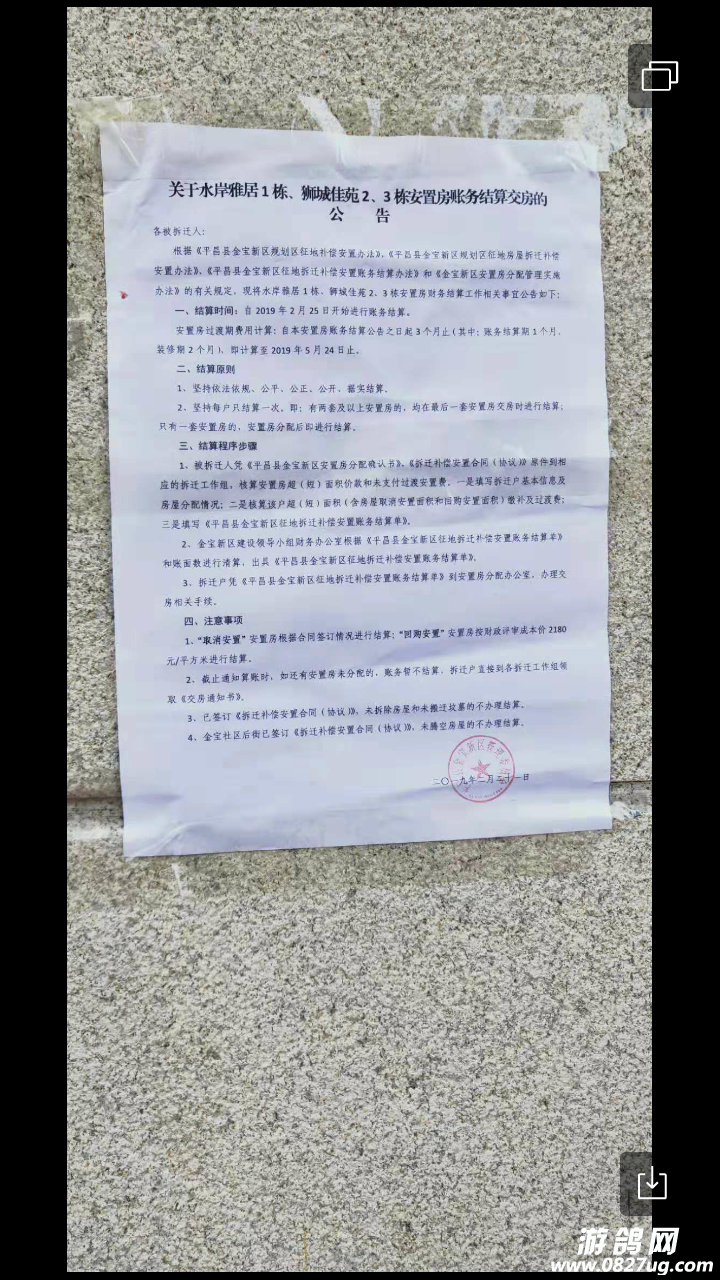 关于水岸雅居1栋、狮城佳苑2、3栋安置房账务结算交房的
公 告
各被拆迁人：
根据《平昌县金宝新区规划区征地补偿安置办法》、《平昌县金宝新区规划区征地房屋拆迁补偿
安置办法》、《平昌县金宝新区征地拆迁补偿安置账务结算办法》和《金宝新区安置房分配管理实施
办法》的有关规定，现将水岸雅居1栋、狮城佳苑2、3栋安置房财务结算工作相关事宜公告如下：
一、结算时间：自2019年2月25日开始进行账务结算。
安置房过渡期费用计算：自本安置房账务结算公告之日起3个月止（其中：账务结算期1个月，
装修期2个月），即计算至2019年5月24日止。
二、结算原则
1、坚持依法依规、公平、公正、公开、据实结算。
2、坚持每户只结算一次。即：有两套及以上安置房的，均在最后一套安置房交房时进行结算；
只有一套安置房的，安置房分配后即进行结算。
三、结算程序步骤
1、被拆迁人凭《平昌县金宝新区安置房分配确认书》、《拆迁补偿安置合同（协议）》原件到相
应的拆迁工作组，核算安置房超（短）面积价款和未支付过渡安置费，一是填写拆迁户基本信息及
房屋分配情况；二是核算该户超（短）面积（含房屋取消安置面积和回购安置面积）缴补及过渡费；
三是填写《平昌县金宝新区征地拆迁补偿安置账务结算单》。
2、金宝新区建设领导小组财务办公室根据《平昌县金宝新区征地拆迁补偿安置账务结算单》
和账面数进行清算，出具《平昌县金宝新区征地拆迁补偿安置账务结算单》。
3、拆迁户凭《平昌县金宝新区征地拆迁补偿安置账务结算单》到安置房分配办公室，办理交
房相关手续。
四、注意事项
1、“取消安置”安置房根据合同签订情况进行结算；“回购安置”安置房按财政评审成本价2180
元/平方米进行结算。
2、截止通知算账时，如还有安置房未分配的，账务暂不结算，拆迁户直接到各拆迁工作组领
取《交房通知书》。
3、已签订《拆迁补偿安置合同（协议）》，未拆除房屋和未搬迁坟墓的不办理结算。
4、金宝社区后街已签订《拆迁补偿安置合同（协议）》，未腾空房屋的不办理结算。
二〇一九年二月二十一日
游鸽网
www.0827ug.com